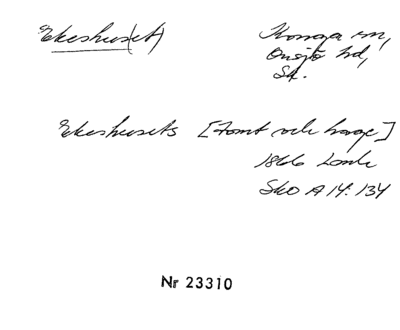 Ekeshus(et)
Konga sn,
Onsjö hd,
Sk.
Ekeshusets [tomt och hage]
1866 Lantm
Sko A 14:134
Nr 23310